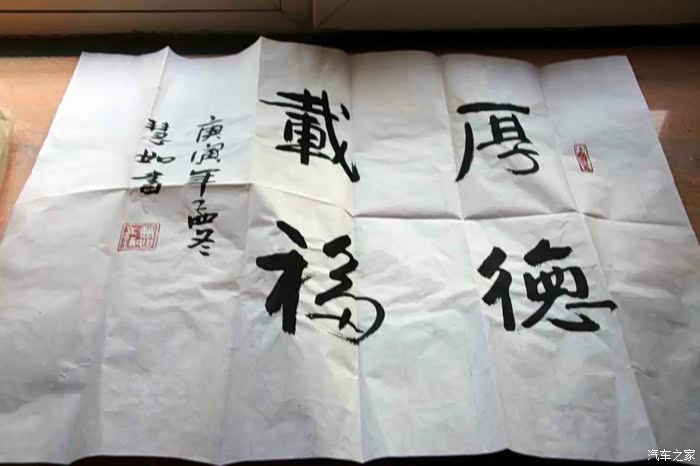 厚德
載福
庚寅年孟冬
慧如書
汽车之家